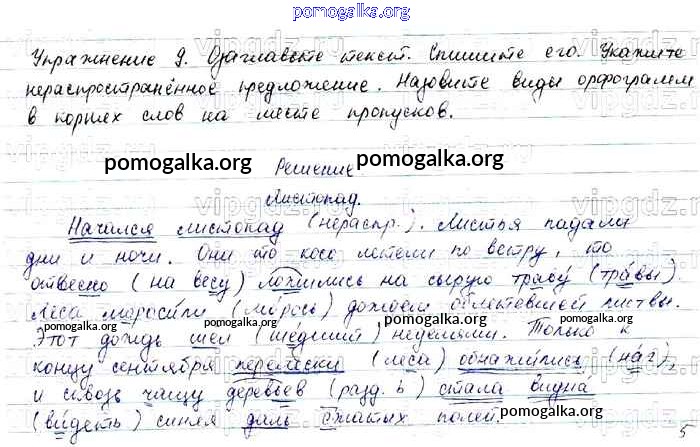 pomogalka.org
Упражнение 9. Озаглавьте текст. Спишите его. Укажите
нераспространённое предложение. Назовите виды орфограмм
в корнях слов на месте пропусков.
pomogalka.org
pomogalka.org
Решение
Листопад.
Начался листопад (нераспр.). Листья падали
дни и ночи. Они то косо летели по ветру, то
отвесно (на весу) ложились на сырую траву (травы).
Леса моросили (морось) дождём облетевшей листвы.
pomogalka.org pomogalka.org pomogalka.org
Этот дождь шёл (шедший) неделями. Только к
концу сентября перелески (леса) обнажились (наг),
и сквозь чащу деревьев (разд. ь) стала видна
(видеть) синяя даль сжатых полей.
pomogalka.org
5